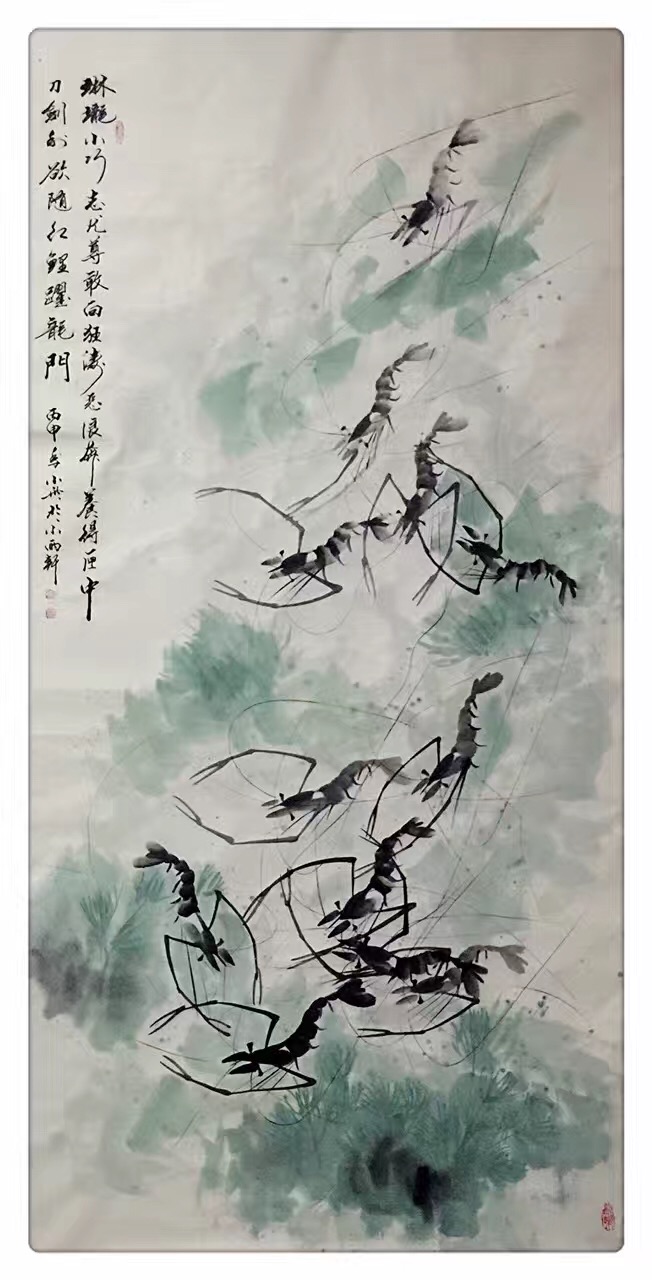 琳瓏小巧志尤尊敢向狂濤惡浪奔養得匣中
刀劍利欲隨紅鯉躍龍門
丙申 小 於小雨軒